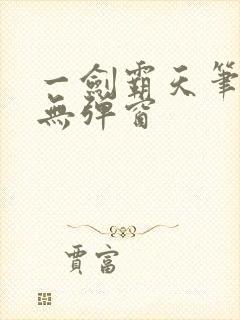 一劍霸天筆
無彈窗
賈富